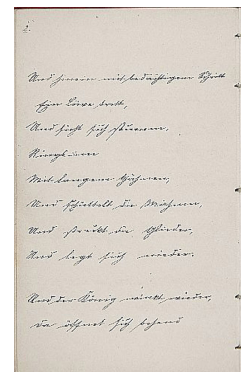 2.
Und hinein mit bedächtigem Schritt
Ein Löwe tritt,
Und sieht sich stumm
Rings um
Mit langem Gähnen,
Und schüttelt die Mähnen,
Und streckt die Glieder,
Und legt sich nieder.
Und der König winkt wieder,
Da öffnet sich behend